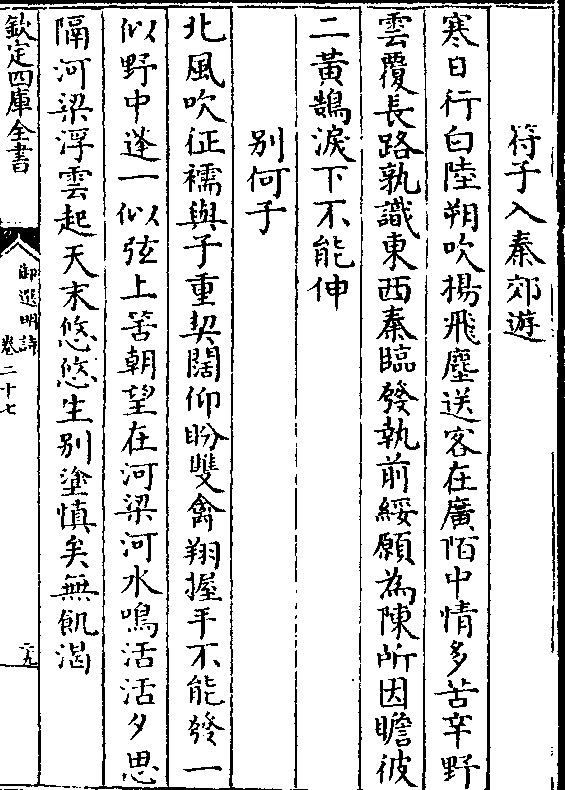 符子入秦郊遊
寒日行白陸朔吹揚飛塵送客在廣陌中情多苦辛野
雲覆長路孰識東西秦臨發執前綏願為陳所因瞻彼
二黃鵠淚下不能伸
别何子
北風吹征襦與子重契闊仰盼雙禽翔握手不能發一
似野中逢一似弦上筈朝望在河梁河水鳴活活夕思
隔河梁浮雲起天末悠悠生别塗慎矣無飢渴
欽定四庫全書
御選明詩
卷二十七
二九